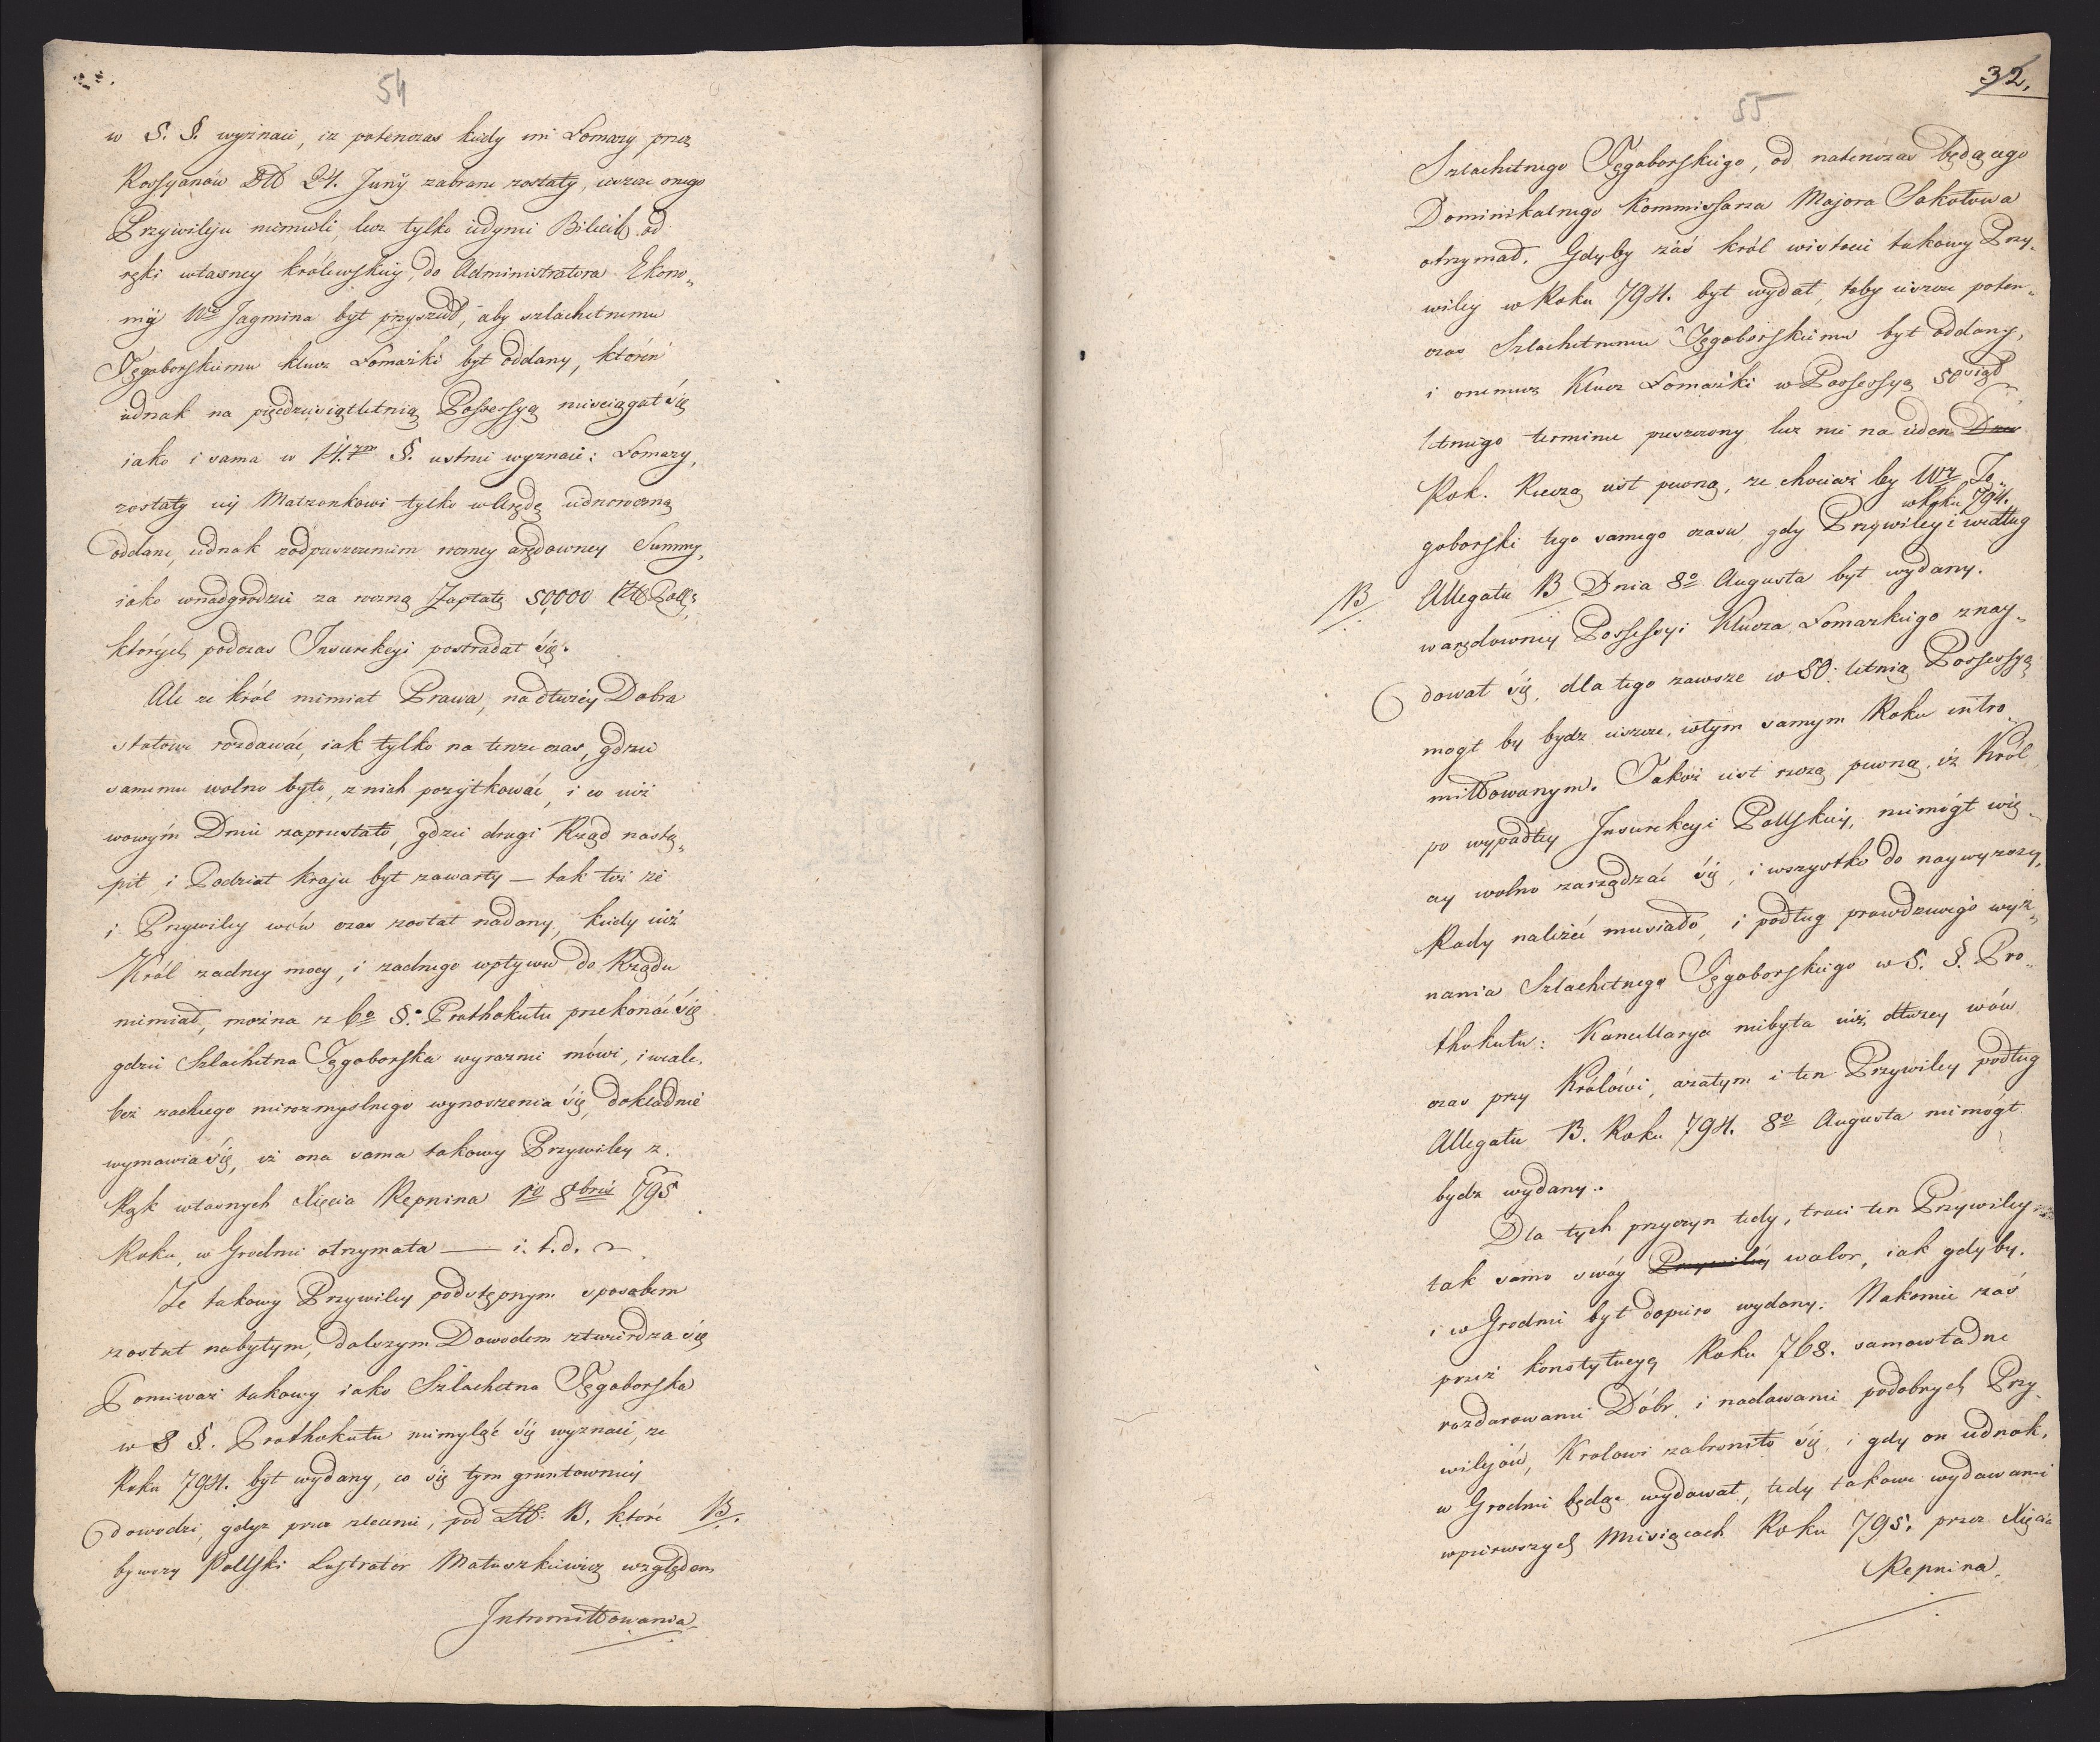 54
w 5. §. wyznaie, iz potenczas kiedy im Łomazy przez
Rossyanów Dtt 24. Junÿ zabrane zostały, ieszcze onego
Przywileju niemieli, lecz tylko iedynie Bilecik od
ręki własney królewskiey, do Administratora Ekono„
miÿ Wgo Jagmina był przyszedł, aby szlachetnemu
Tęgoborskiemu klucz Łomazki był oddany, któren
iednak na pięćdziesiątletnią Possessyą niesciągał się
iako i sama w 14.tym §. ustnie wyznaie: Łomazy,
zostały iey Małzonkowi tylko w Arędę iednoroczną
oddane, iednak z odpuszczeniem roczney arędowney Summy,
iako wnadgrodzie za roczną Zapłatę 50,000 Złł Poll:
których podczas Insurekcyi postradał się.
Ale ze król niemiał Prawa, na dłuzéy Dobra
stołowe rozdawáć, iak tylko na tenze czas, gdzie
samemu wolno było, z nich pozÿtkowáć, i co iuż
wowÿm Dniu zaprzestało, gdzie drugi Rząd nastą„
pił i Podział kraju był zawarty — tak też że
i Przywiley wów czas został nadany, kiedy iuź
Król zadney mocy, i zadnego wpływu do Rządu
niemiał, można z 6o §. Prothokułu przekonáć się
gdzie Szlachetna Tęgoborska wyraznie mówi, i wcale
beż zadnego nierozmyslnego wynoszenia się, dokładnie
wymawia się, iż ona sama takowy Przywiley z
Rąk własnych Xięcia Repnina 1o 8bris 795
Roku, w Grodnie otrzymała — i. t. d.
Ze takowy Przywiley podstępnym sposobem
został nabytym, dalszym Dowodem ztwierdza się
Ponieważ takowy iako Szlachetna Tęgoborska
w 8 §. Prothokułu niemyląc się wyznaie, ze
Roku 794. był wydany, co się tym gruntowniey
dowodzi, gdyz przez zlecenie, pod Ltt: B. które B.
bywszy Pollski Lustrator Matuszkiewicz względem
Intromittowania
32.
55
Szlachetnego Tęgoborskiego, od natenczas będącego
Dominikalnego Kommissarza Majora Sakołowa
otrzymał. Gdyby záś król wistocie takowy Przy„
wiley w Roku 794. był wydał, toby ieszcze poten„
czas Szlachetnemu Tęgoborskiemu był oddany,
i onemuz Klucz Łomażki w Possessyą 50siąt
letnego terminu puszczony lecz nie na ieden
Rok. Rzeczą iest pewną, ze chociaż by Wz Tę„
w Roku 794.
goborski tego samego czasu, gdy Przywiley i według
B Allegatu B Dnia 8o Augusta był wydany.
w arędowney Possessyi Klucza Łomazkiego znay„
dował się, dla tego zawsze w 50. letnią Possessyą
mogł by bydz ieszcze, w tym samym Roku intro„
mittowanym. Takoż iest rzeczą pewną, iż Król
po wypadłey Insurekcyi Pollskiey, niemógł wię„
cey wolno zarządzáć się, i wszystko do naywyzszey
Rady nalézéć musiało, i podług prawdziwego wyz„
nania Szlachetnego Tęgoborskiego w 5. §. Pro„
thokułu: Kancellarya niebyła iuż dłuzey wów
czas przy Królówi, azatym i ten Przywiley podług
Allegatu B. Roku 794. 8o Augusta niemógł
bydz wydany.
Dla tych przyczyn tedy, traci ten Przywiley
tak samo swóy Przywiléy walor, iak gdyby
i w Grodnie był dopiero wydany: Nakoniec záś
przéz konstytucyą Roku 768. samowładne
rozdarowanie Dóbr, i nadawanie podobnych Przy„
wilejów, Krolowi zabroniło się, i gdy on iednak,
w Grodnie będąc wydawał, tedy takowe wydawanie
w pierwszych Miesiącach Roku 795. przez Xięcia
Repnina.